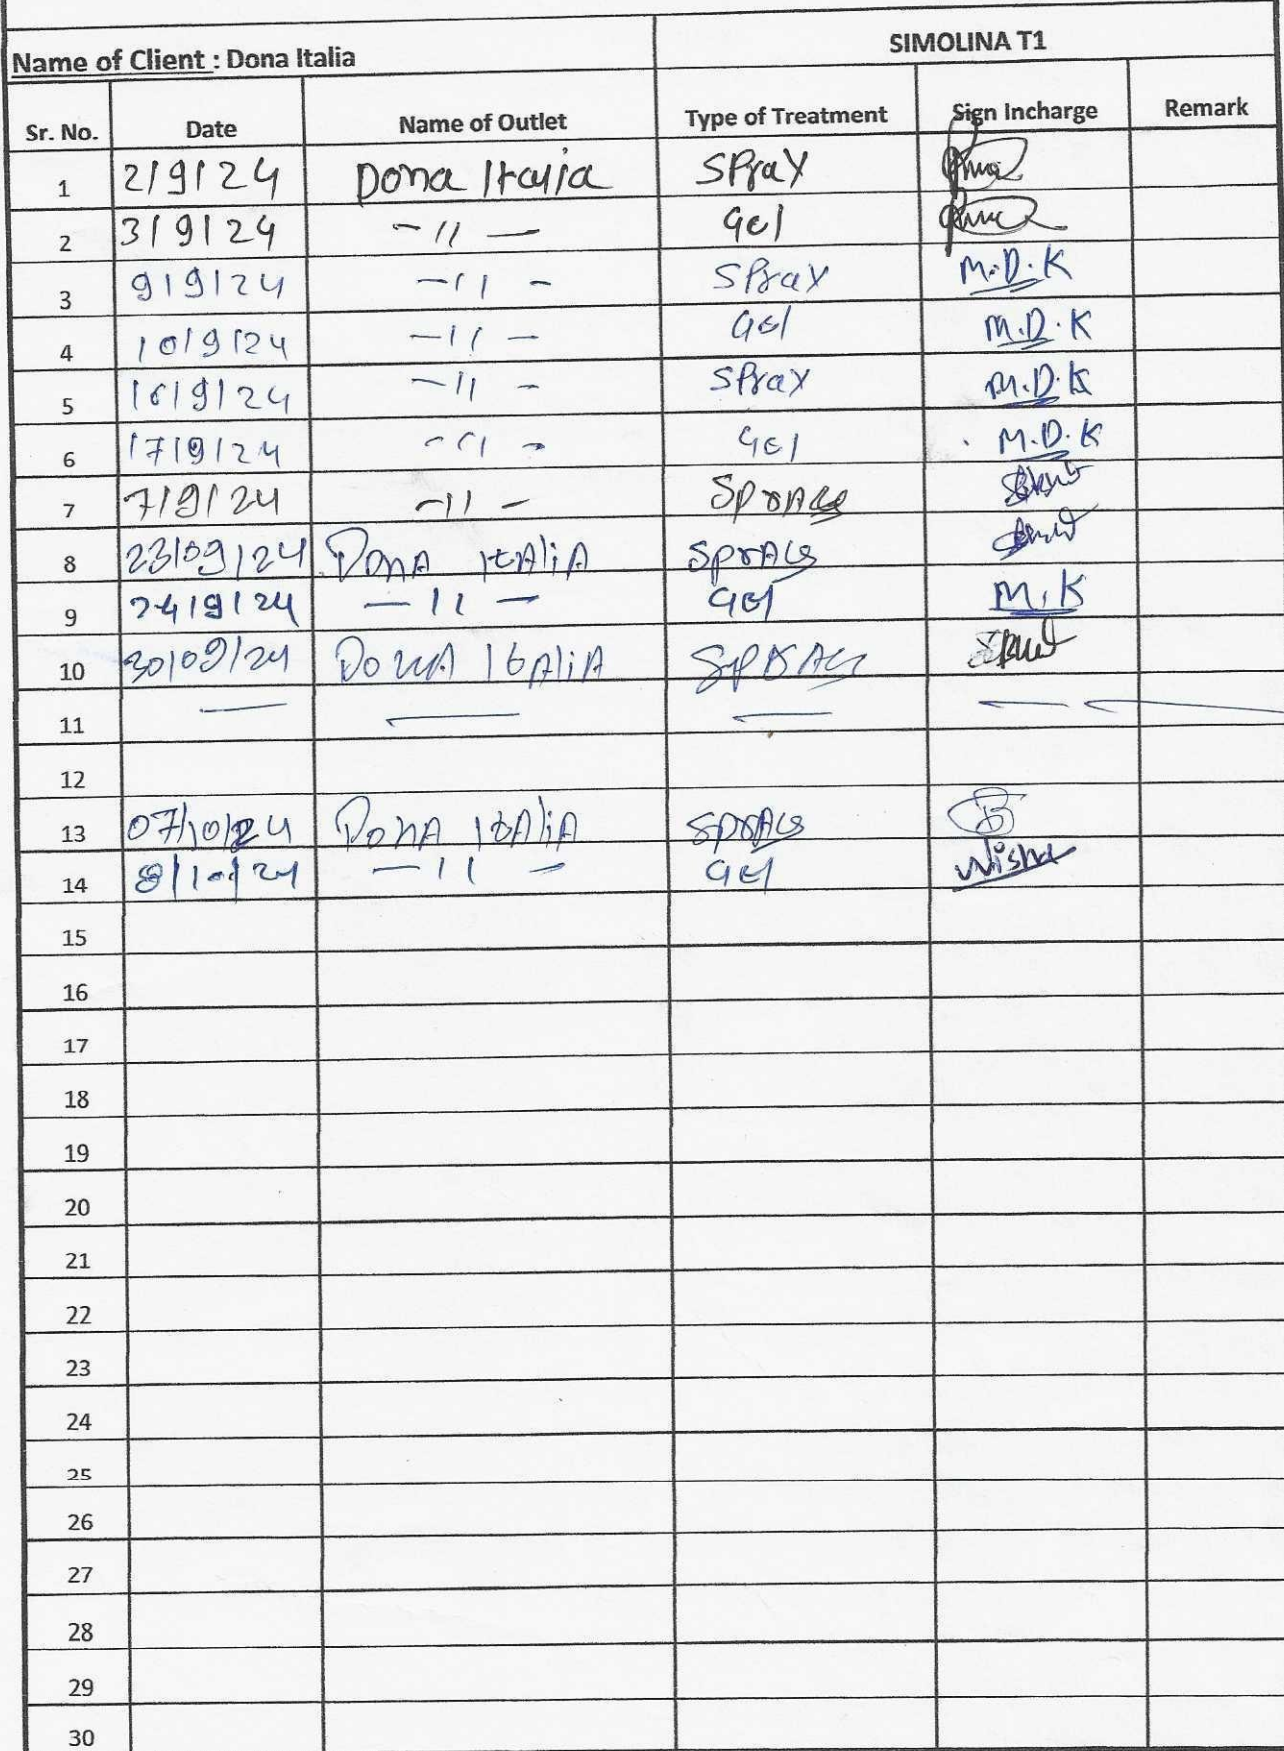 Name of Client : Dona Italia SIMOLINA T1
Sr. No. Date Name of Outlet Type of Treatment Sign Incharge Remark
1 2/9/24 Dona Italia SPraY
2 3/9/24 -11- Gel
3 9/9/24 -11- SPraY M.D.K
4 10/9/24 -11- Gel M.D.K
5 16/9/24 -11- SPraY M.D.K
6 17/9/24 -11- Gel M.D.K
7 7/9/24 -11-
8 23/09/24 DonA ItAliA
9 24/9/24 -11- GEl M.K
10 30/09/24 DonA ItAliA
11 — — — — —
12
13 07/10/24 DonA ItAliA
14 8/10/24 -11- GEl Nisha
15
16
17
18
19
20
21
22
23
24
25
26
27
28
29
30